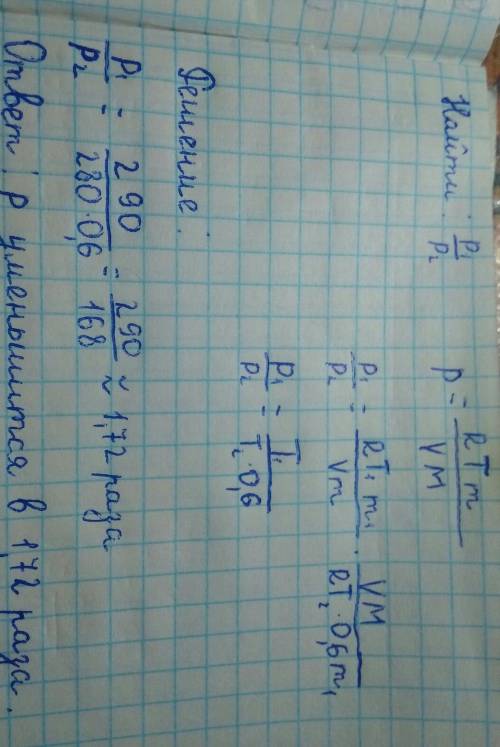 Найти: p₁/p₂
p = RTm/VM
p₁/p₂ = RT₁m₁/Vm · VM/RT₂·0,6m₁
p₁/p₂ = T₁/T₂·0,6
Решение:
p₁/p₂ = 290/280·0,6 = 290/168 ≈ 1,72 раза
Ответ: p уменьшится в 1,72 раза.